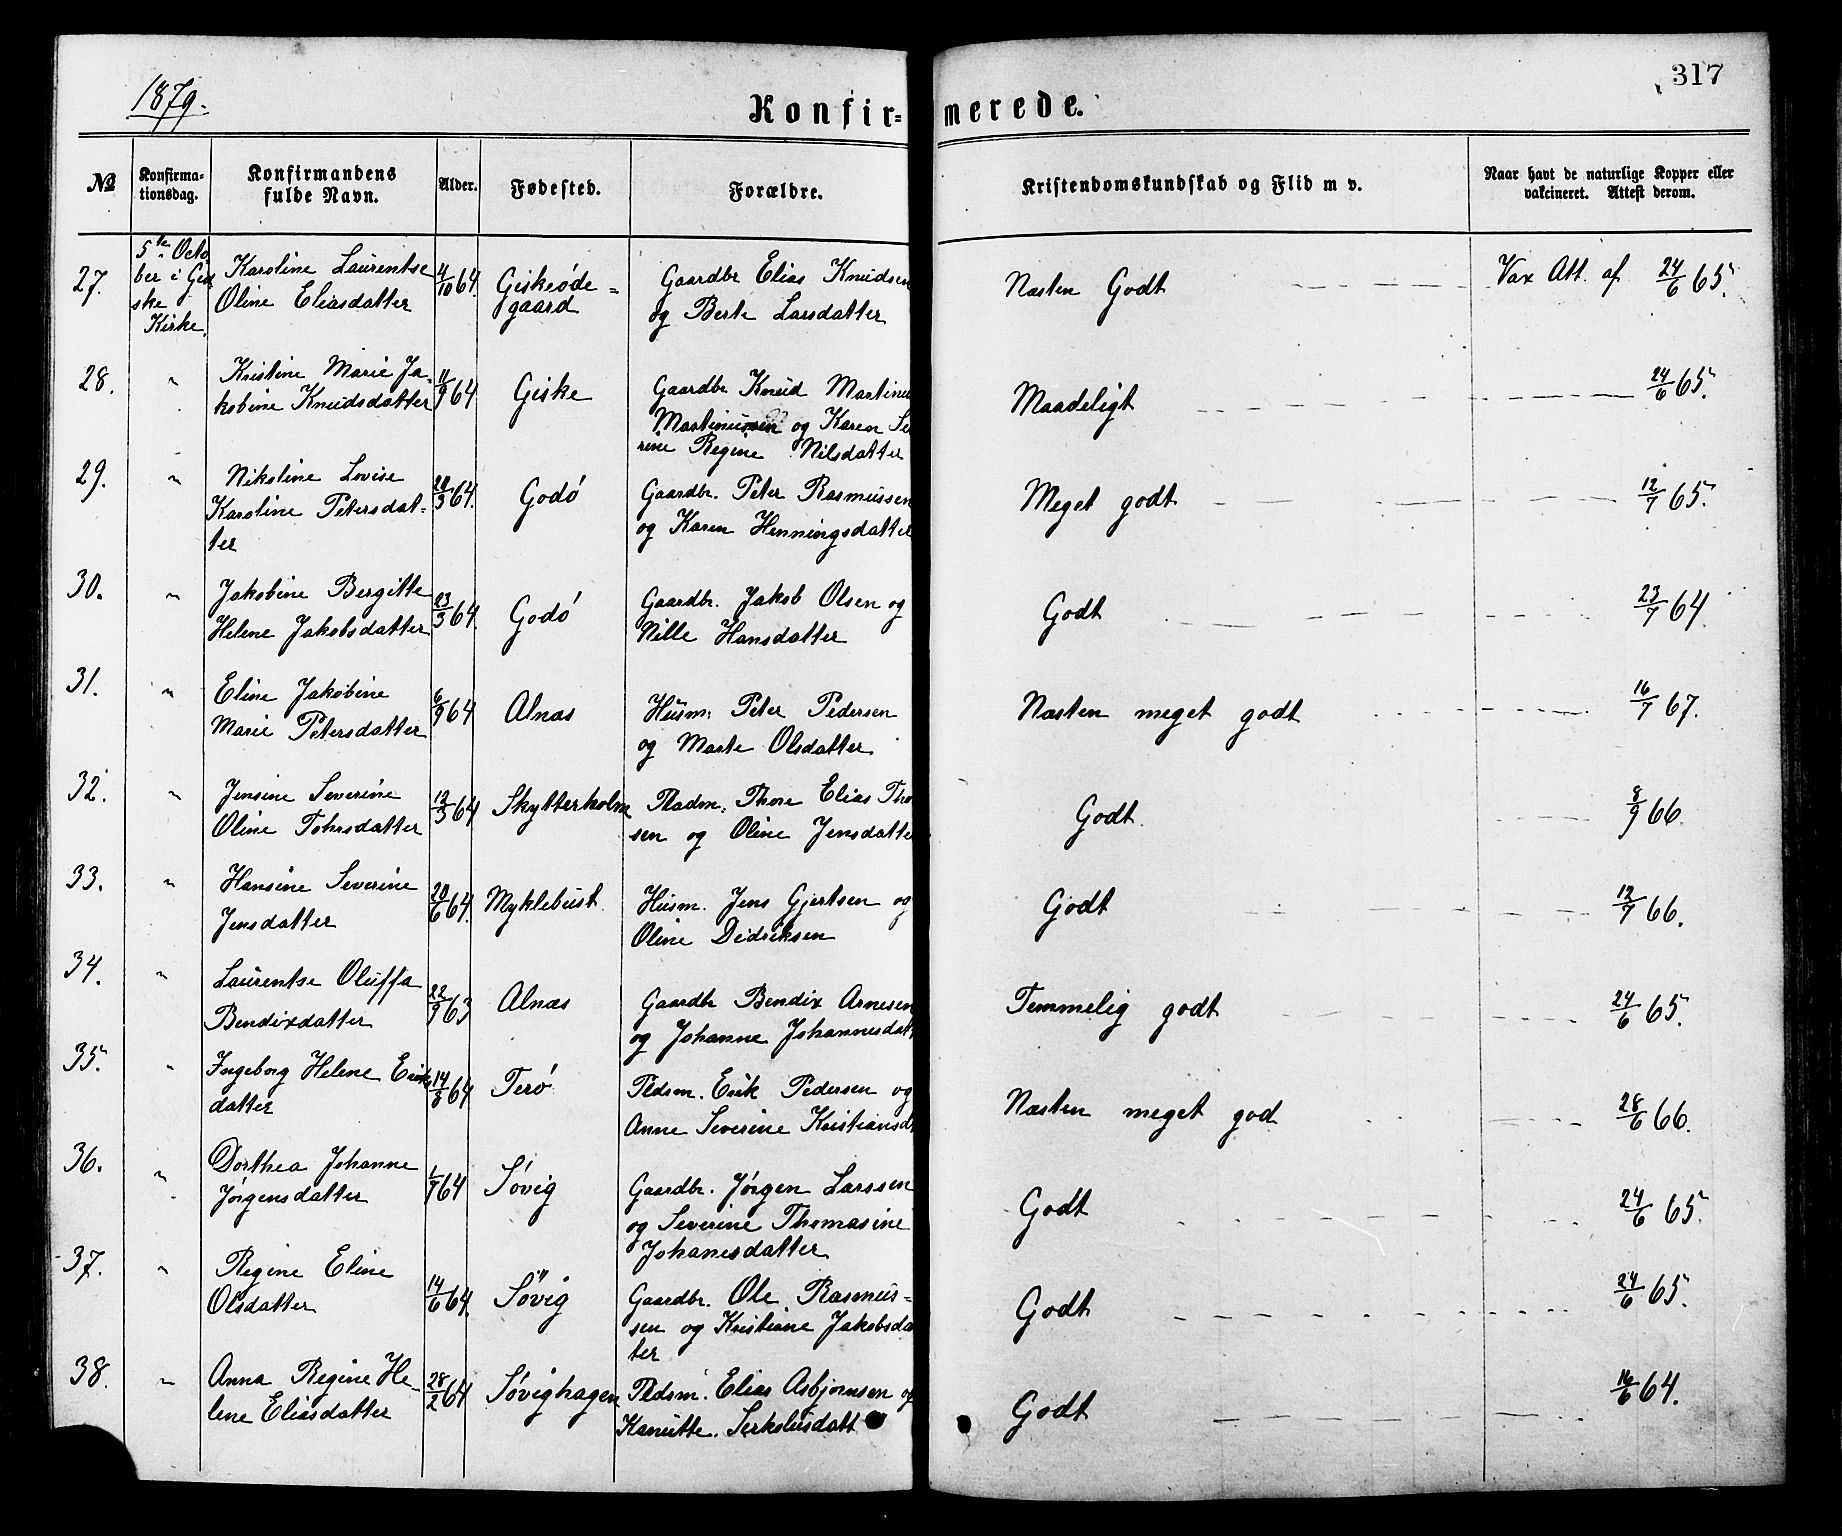 1879.
317
Konfir-
merede.
№
Konfirma-
tionsdag.
Konfirmandens
fulde Navn.
Alder.
Fødested.
Forældre.
Kristendomskundskab og Flid m v.
Naar havt de naturlige Kopper eller
vakcineret. Attest derom.
27.
5te Octo
ber i Gis
ske
Kirke.
Karoline Laurentse
Oline Eliasdatter
4/10 64.
Giskeøde=
gaard
Gaardbr Elias Knudsen
og Berte Larsdatter
Næsten Godt
Vax Att. af 24/6 65.
28.
"
Kristine Marie Ja-
kobine Knudsdatter
11/9 64
Giske
Gaardbr Knud Martinus
Martinussen og Karen Se
rine Regine Nilsdatter
Maadeligt
24/6 65.
29.
"
Nikoline Lovise
Karoline Petersdat-
ter
64.
Godø
Gaardbr. Peter Rasmussen
og Karen Henningsdatter
Meget godt
12/7 65.
30.
"
Jakobine Bergitte
Helene Jakobsdatter
23/3 64.
Godø
Gaardbr. Jakob Olsen og
Nille Hansdatter
Godt
23/7 64.
31.
"
Eline Jakobine
Marie Petersdatter
6/9 64
Alnæs
Husm: Peter Pedersen
og Marte Olsdatter
Næsten meget godt
16/7 67.
32.
"
Jensine Severine
Oline Tohrsdatter
64
Skytterholm
Pladm: Thore Elias Tho
sen og Oline Jensdatte
Godt
8/9 66.
33.
"
Hansine Severine
Jensdatter
20/6 64.
Myklebust
Husm. Jens Gjertsen og
Oline Didriksen
Godt
12/7 66.
34.
"
Laurentse Oluffa
Bendixdatter
22/9 63
Alnæs
Gaardbr Bendix Arnesen
og Johanne Johannesdat
Temmelig godt
24/6 65.
35.
"
Ingeborg Helene Eriks
datter
14/8 64
Terø
Pldsm. Erik Pedersen og
Anne Severine Kristiansd
Næsten meget god
28/6 66.
36.
"
Dorthea Johanne
Jørgensdatter
64
Søvig
Gaardbr. Jørgen Larssen
og Severine Thomasine
Johanesdatter
Godt
24/6 65.
37.
"
Regine Eline
Olsdatter
14/6 64.
Søvig
Gaardbr. Ole Rasmus-
sen og Kristiane Jakobsda
ter
Godt
24/6 65.
38.
"
Anna Regine He-
lene Eliasdatter
28/2 64
Søvighagen
Pldsm. Elias Asbjørnsen og
Kanutte.
Godt
64.